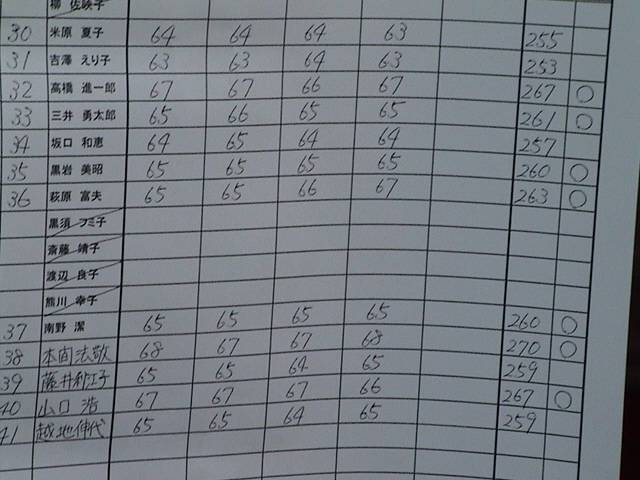 柳 佐咲子
30 米原 夏子 64 64 64 63 255
31 吉澤 えり子 63 63 64 63 253
32 高橋 進一郎 67 67 66 67 267 ○
33 三井 勇太郎 65 66 65 65 261 ○
34 坂口 和恵 64 65 64 64 257
35 黒岩 美昭 65 65 65 65 260 ○
36 萩原 富夫 65 65 66 67 263 ○
黒須 フミ子
斎藤 靖子
渡辺 良子
熊川 幸子
37 南野 潔 65 65 65 65 260 ○
38 本固 法敬 68 67 67 68 270 ○
39 藤井 利江子 65 65 64 65 259
40 山口 浩 67 67 67 66 267 ○
41 越地 伸代 65 65 64 65 259